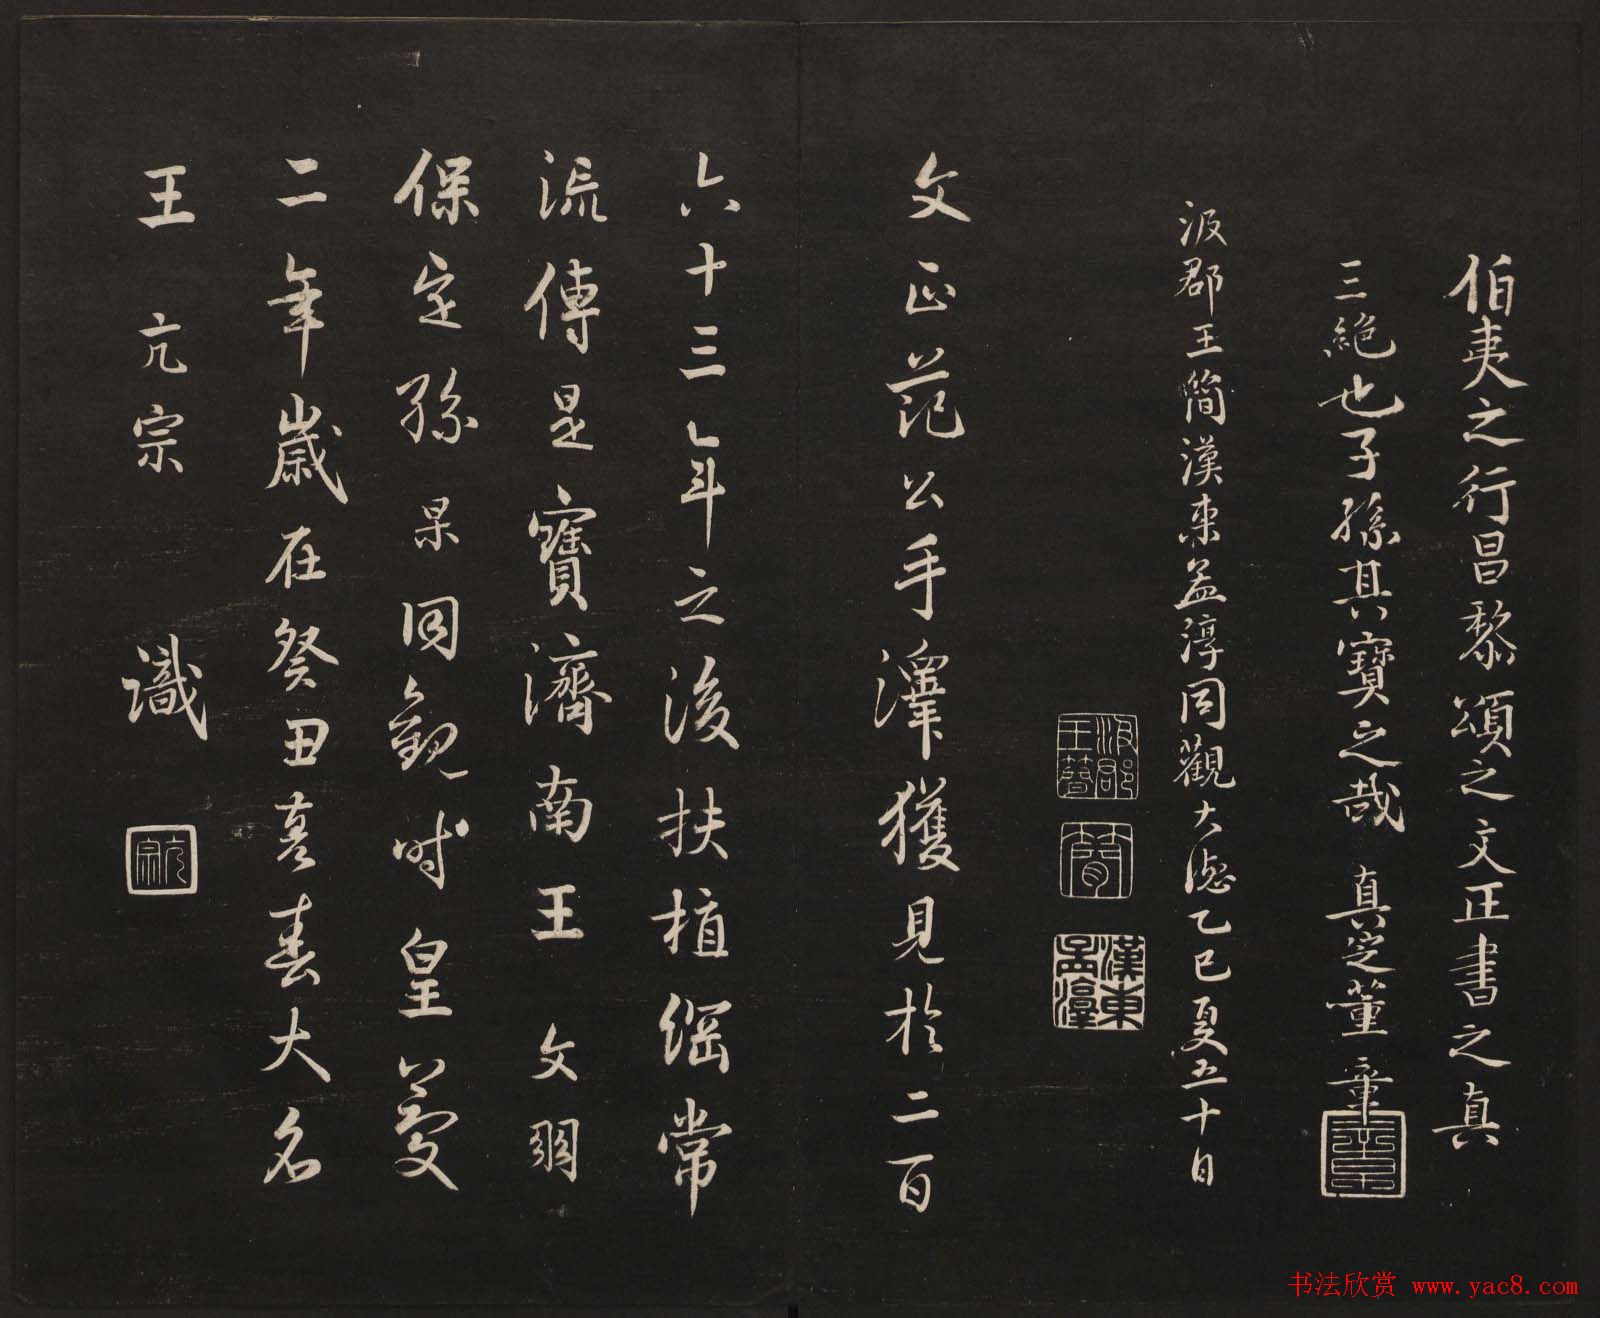 伯夷之行昌黎頌之文正書之真
三絶也子孫其寶之哉真定董章
汲郡王簡漢東孟淳同觀大德乙巳夏五十日
汲郡王簡
簡
漢東孟淳
文正范公手澤獲見於二百
六十三年之後扶植綱常
流傳是寶濟南王文翊
保定孫杲同觀時皇慶
二年歲在癸丑喜春大名
王亢宗識
亢宗
书法欣赏 www.yac8.com